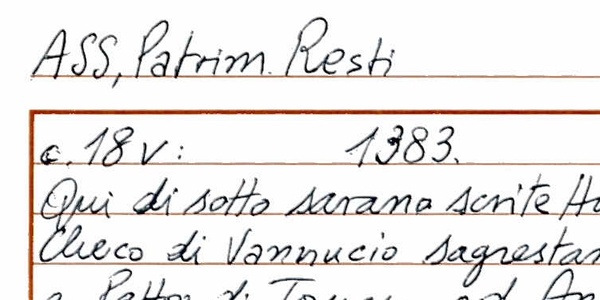 ASS, Patrim. Resti
c. 18 v: 1383.
Qui di sotto sarano scrite
Checo di Vannucio sagrestan
di